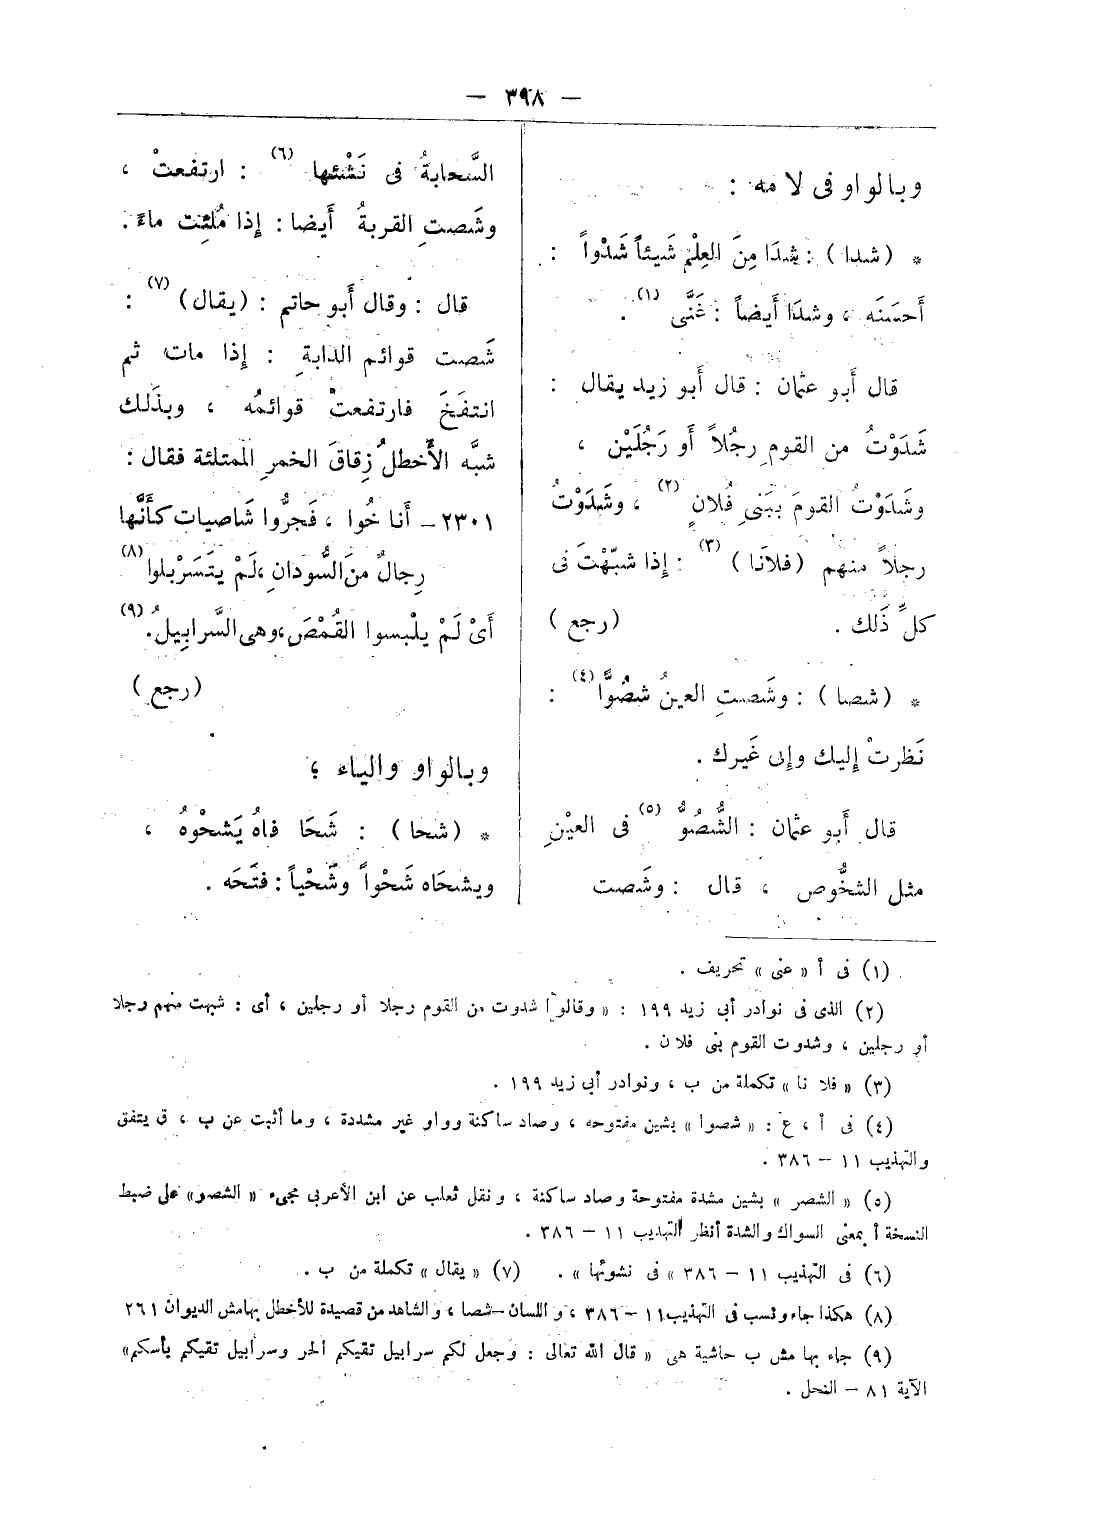 — ٣٩٨ —
وبالواو فى لامه :
* ( شدا ) : شَدَا مِنَ العِلْمِ شَيئاً شَدْواً :
أَحسَنَه ، وشدَا أَيضاً : غَنَّى (١) .
قال أَبو عثمان : قال أَبو زيد يقال :
شَدَوْتُ من القومِ رجُلاً أَو رَجُلَيْن ،
وشَدَوْتُ القومَ ببَنى فُلانٍ (٢) ، وشَدَوْتُ
رجلاً منهم ( فلاَنا ) (٣) : إِذا شبّهْتَ فى
كلِّ ذَلك . ( رجع )
* ( شصا ) : وشَصتِ العينُ شُصُوًّا (٤) :
نَظرتْ إِليك وإِلى غَيرك .
قال أَبو عثمان : الشُّصُوُّ (٥) فى العيْنِ
مثل الشخُّوص ، قال : وشَصت
السَّحابةُ فى نَشْئها (٦) : ارتفعتْ ،
وشَصتِ القربةُ أَيضا : إِذا مُلئِت ماءً .
قال : وقال أَبو حاتم : ( يقال ) (٧) :
شَصت قوائم الدابةِ : إِذا مات ثم
انتفَخَ فارتفعتْ قوائمُه ، وبذَلك
شبَّه الأَخطلُ زِقاقَ الخمرِ الممتلئة فقال :
٢٣٠١ – أَناخُوا ، فَجرُّوا شَاصيات كأَنَّها
رِجالٌ منَ السُّودانِ ، لَمْ يتَسَرْبلوا (٨)
أَىْ لَمْ يلْبسوا القُمْصَ ، وهى السَّرابِيلُ . (٩)
( رجع )
وبالواو والياء ؛
* ( شحا ) : شَحَا فاهُ يَشحْوهُ ،
ويشحَاه شَحْواً وشَحْياً : فتَحَه .
(١) فى أ « عنى » تحريف .
(٢) الذى فى نوادر أبى زيد ١٩٩ : « وقالوا شدوت من القوم رجلا أو رجلين ، أى : شبهت منهم رجلا
أو رجلين ، وشدوت القوم بنى فلان .
(٣) « فلانا » تكملة من ب ، ونوادر أبى زيد ١٩٩ .
(٤) فى أ ، ع : « شصوا » بشين مفتوحه ، وصاد ساكنة وواو غير مشددة ، وما أثبت عن ب ، ق يتفق
والتهذيب ١١ – ٣٨٦ .
(٥) « الشصر » بشين مشدة مفتوحة وصاد ساكنة ، ونقل ثعلب عن ابن الأعرابى مجىء « الشصو » على ضبط
النسخة أ بمعنى السواك والشدة أنظر التهديب ١١ – ٣٨٦ .
(٦) فى التهذيب ١١ – ٣٨٦ » فى نشوئها » . (٧) « يقال » تكملة من ب .
(٨) هكذا جاء ونسب فى التهذيب ١١ – ٣٨٦ ، واللسان – شصا ، والشاهد من قصيدة للأخطل بهامش الديوان ٢٦١
(٩) جاء بهامش ب حاشية هى « قال الله تعالى : وجعل لكم سرابيل تقيكم الحر وسرابيل تقيكم بأسكم»
الآية ٨١ – النحل .